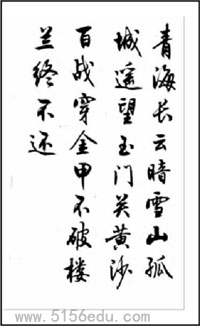 青海长云暗雪山孤
城遥望玉门关黄沙
百战穿金甲不破楼
兰终不还
www.5156edu.com